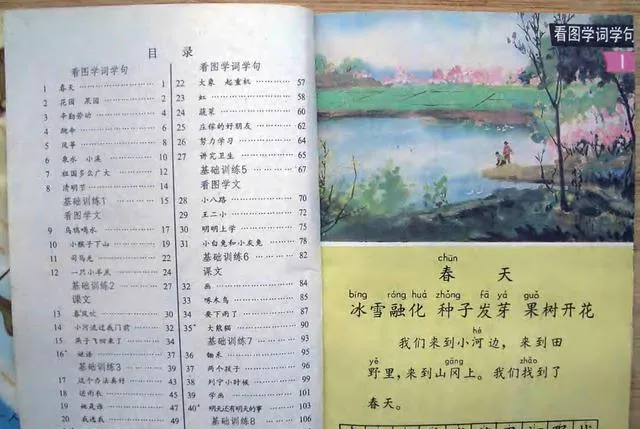 目 录
看图学词学句
1 春天 1
2 花园 果园 2
3 辛勤劳动 4
5 风筝 8
6 泉水 小溪 10
7 祖国多么广大 12
8 清明节 14
基础训练1 15
看图学文
9 乌鸦喝水 17
10 小猴子下山 19
11 司马光 22
12 一只小羊羔 24
基础训练2 27
课文
13 春风吹 30
14 小河流过我门前 32
15 燕子飞回来了 34
16* 谜语 37
基础训练3 39
17 这个办法真好 43
18 送雨衣 45
19 她是谁 47
20 我选我 49
看图学词学句
22 大象 起重机 57
23 虹 58
24 蔬菜 60
25 庄稼的好朋友 62
26 努力学习 64
27 讲究卫生 65
基础训练5 67
看图学文
28 小八路 70
29 王二小 72
30 明明上学 75
31 小白兔和小灰兔 78
基础训练6 82
课文
32 画 84
33 啄木鸟 85
34 要下雨了 87
35* 大熊猫 90
36 锄禾 95
37 两个孩子 96
38 列宁小时候 99
39 学画 101
40* 明天还有明天的事 103
基础训练8 106
看图学词学句
1
chūn
春 天
bīng róng huà zhǒng fā yá guǒ
冰雪融化 种子发芽 果树开花
hé
我们来到小河边，来到田
yě gāng zhǎo
野里，来到山冈上。我们找到了
春天。